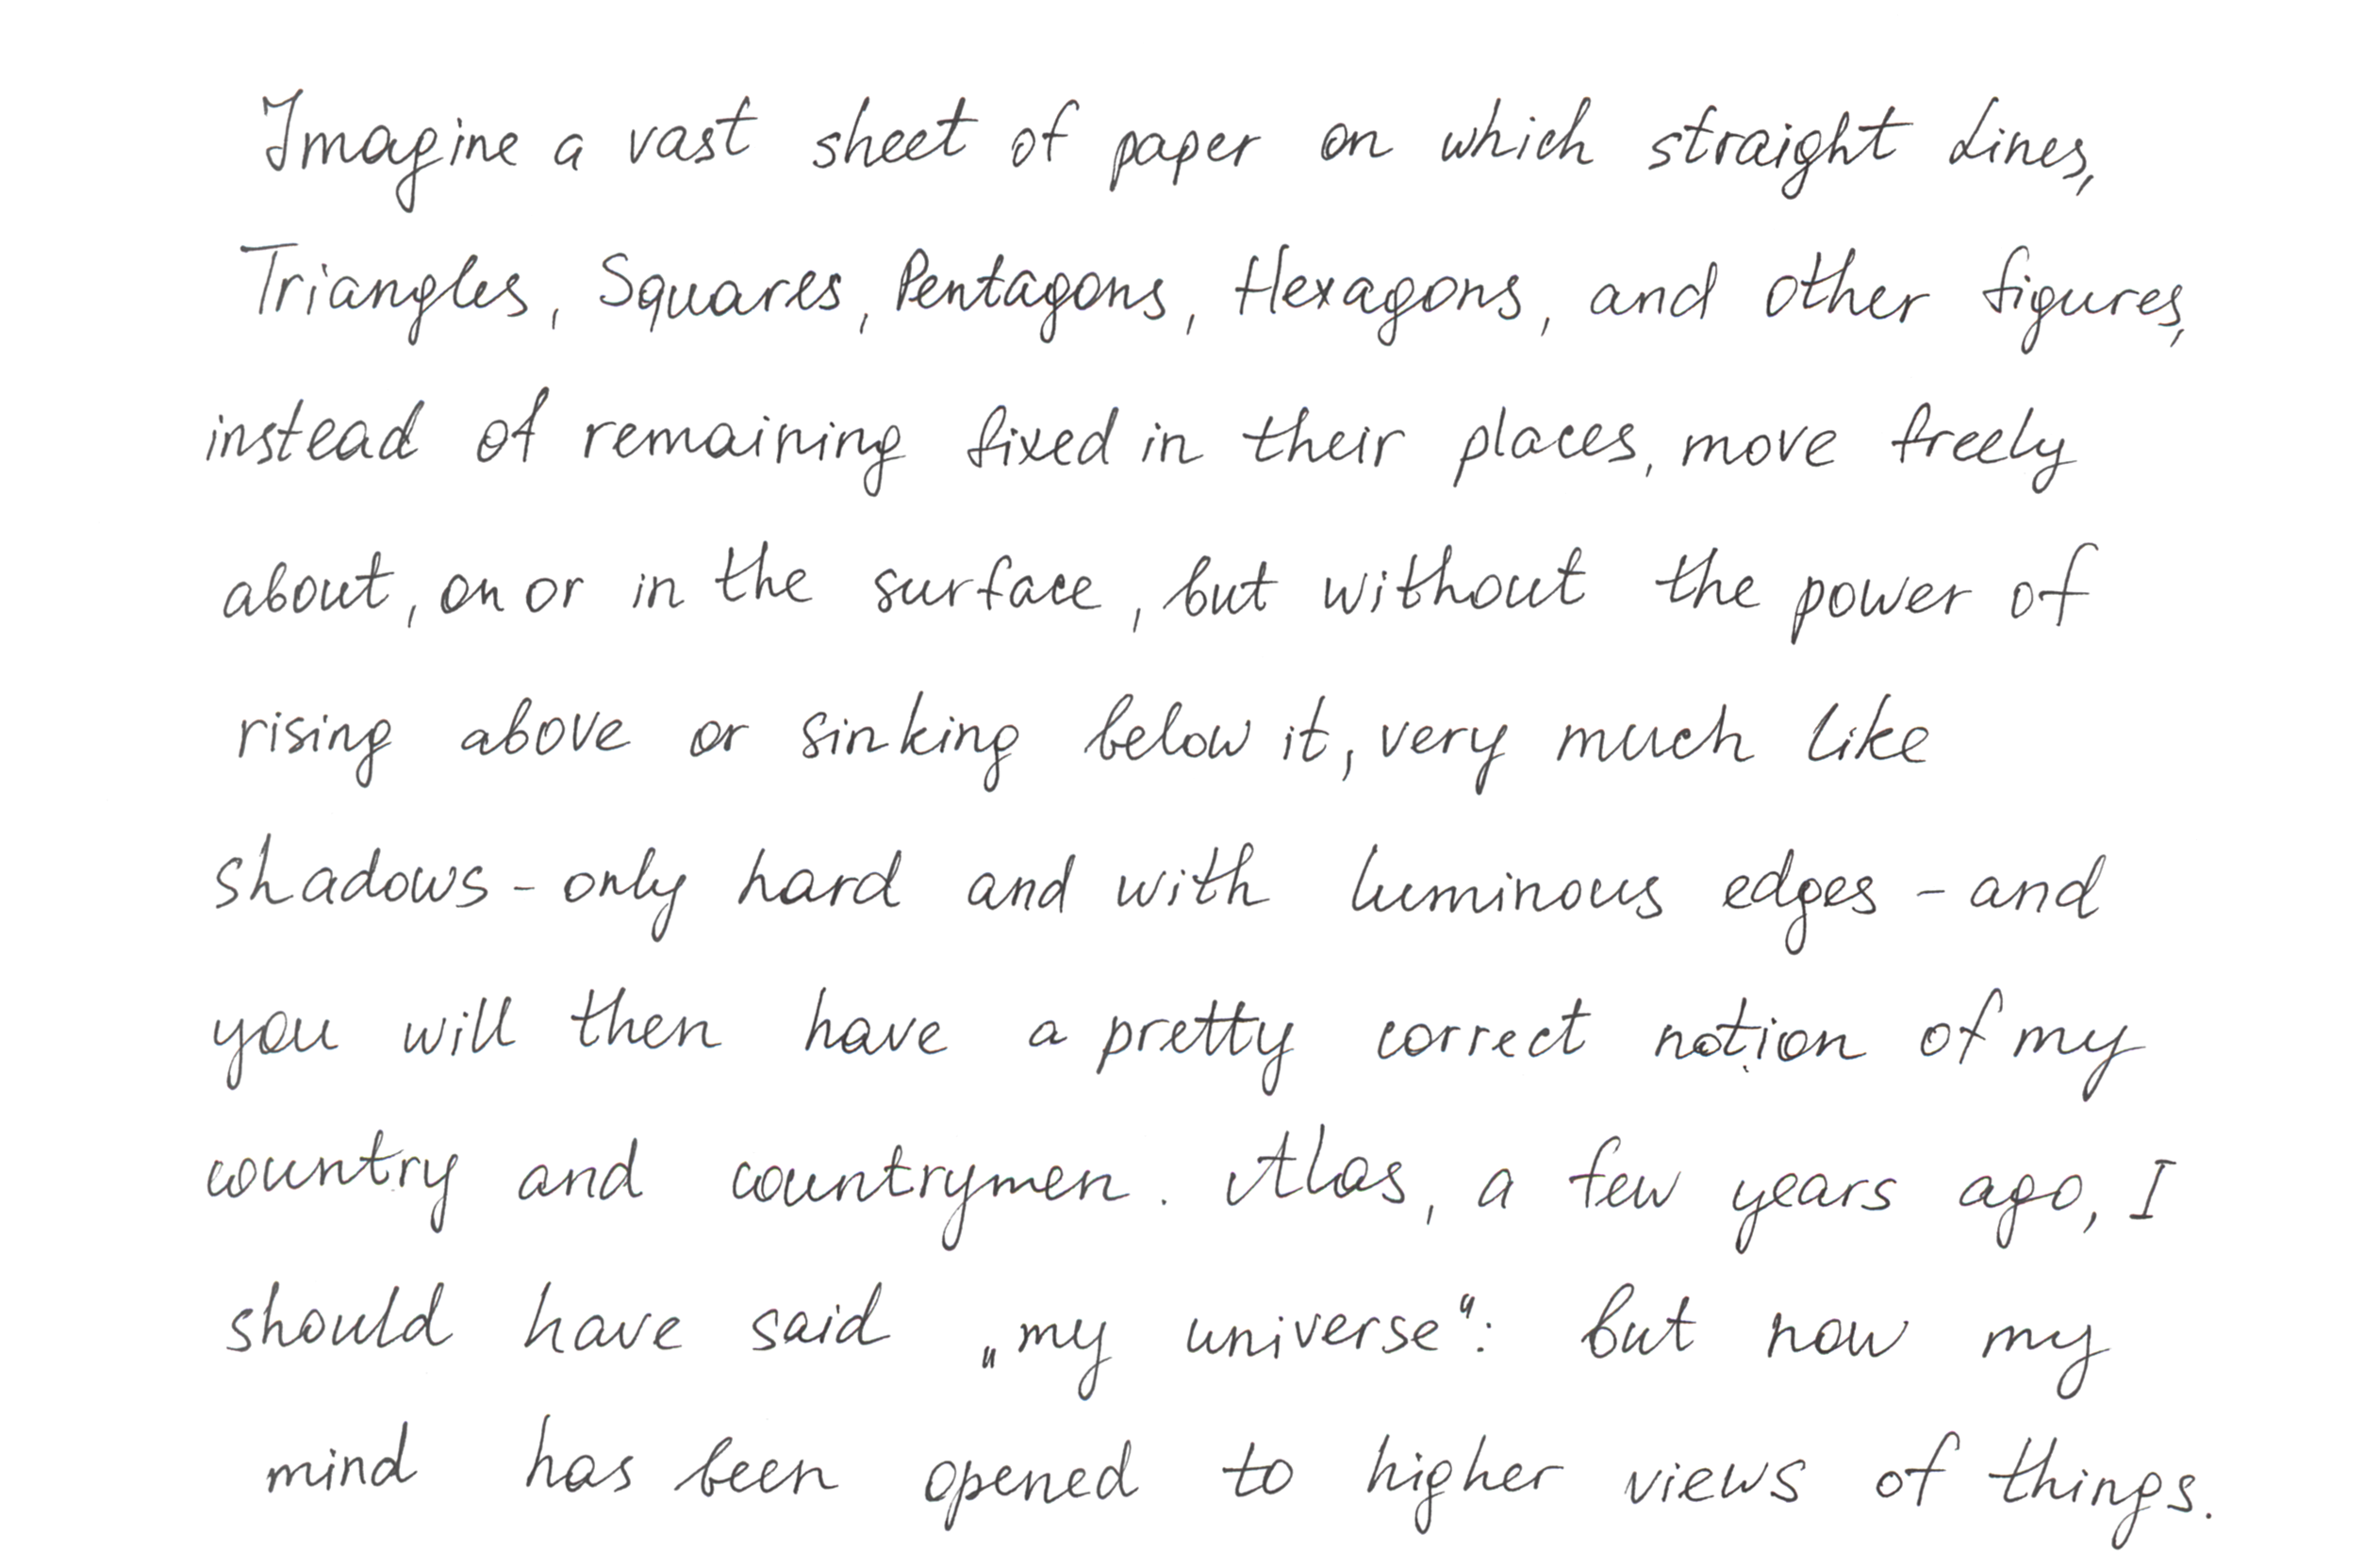 Imagine a vast sheet of paper on which straight Lines,
Triangles, Squares, Pentagons, Hexagons, and other figures,
instead of remaining fixed in their places, move freely
about, on or in the surface, but without the power of
rising above or sinking below it, very much like
shadows - only hard and with luminous edges - and
you will then have a pretty correct notion of my
country and countrymen. Alas, a few years ago, I
should have said „my universe“: but now my
mind has been opened to higher views of things.